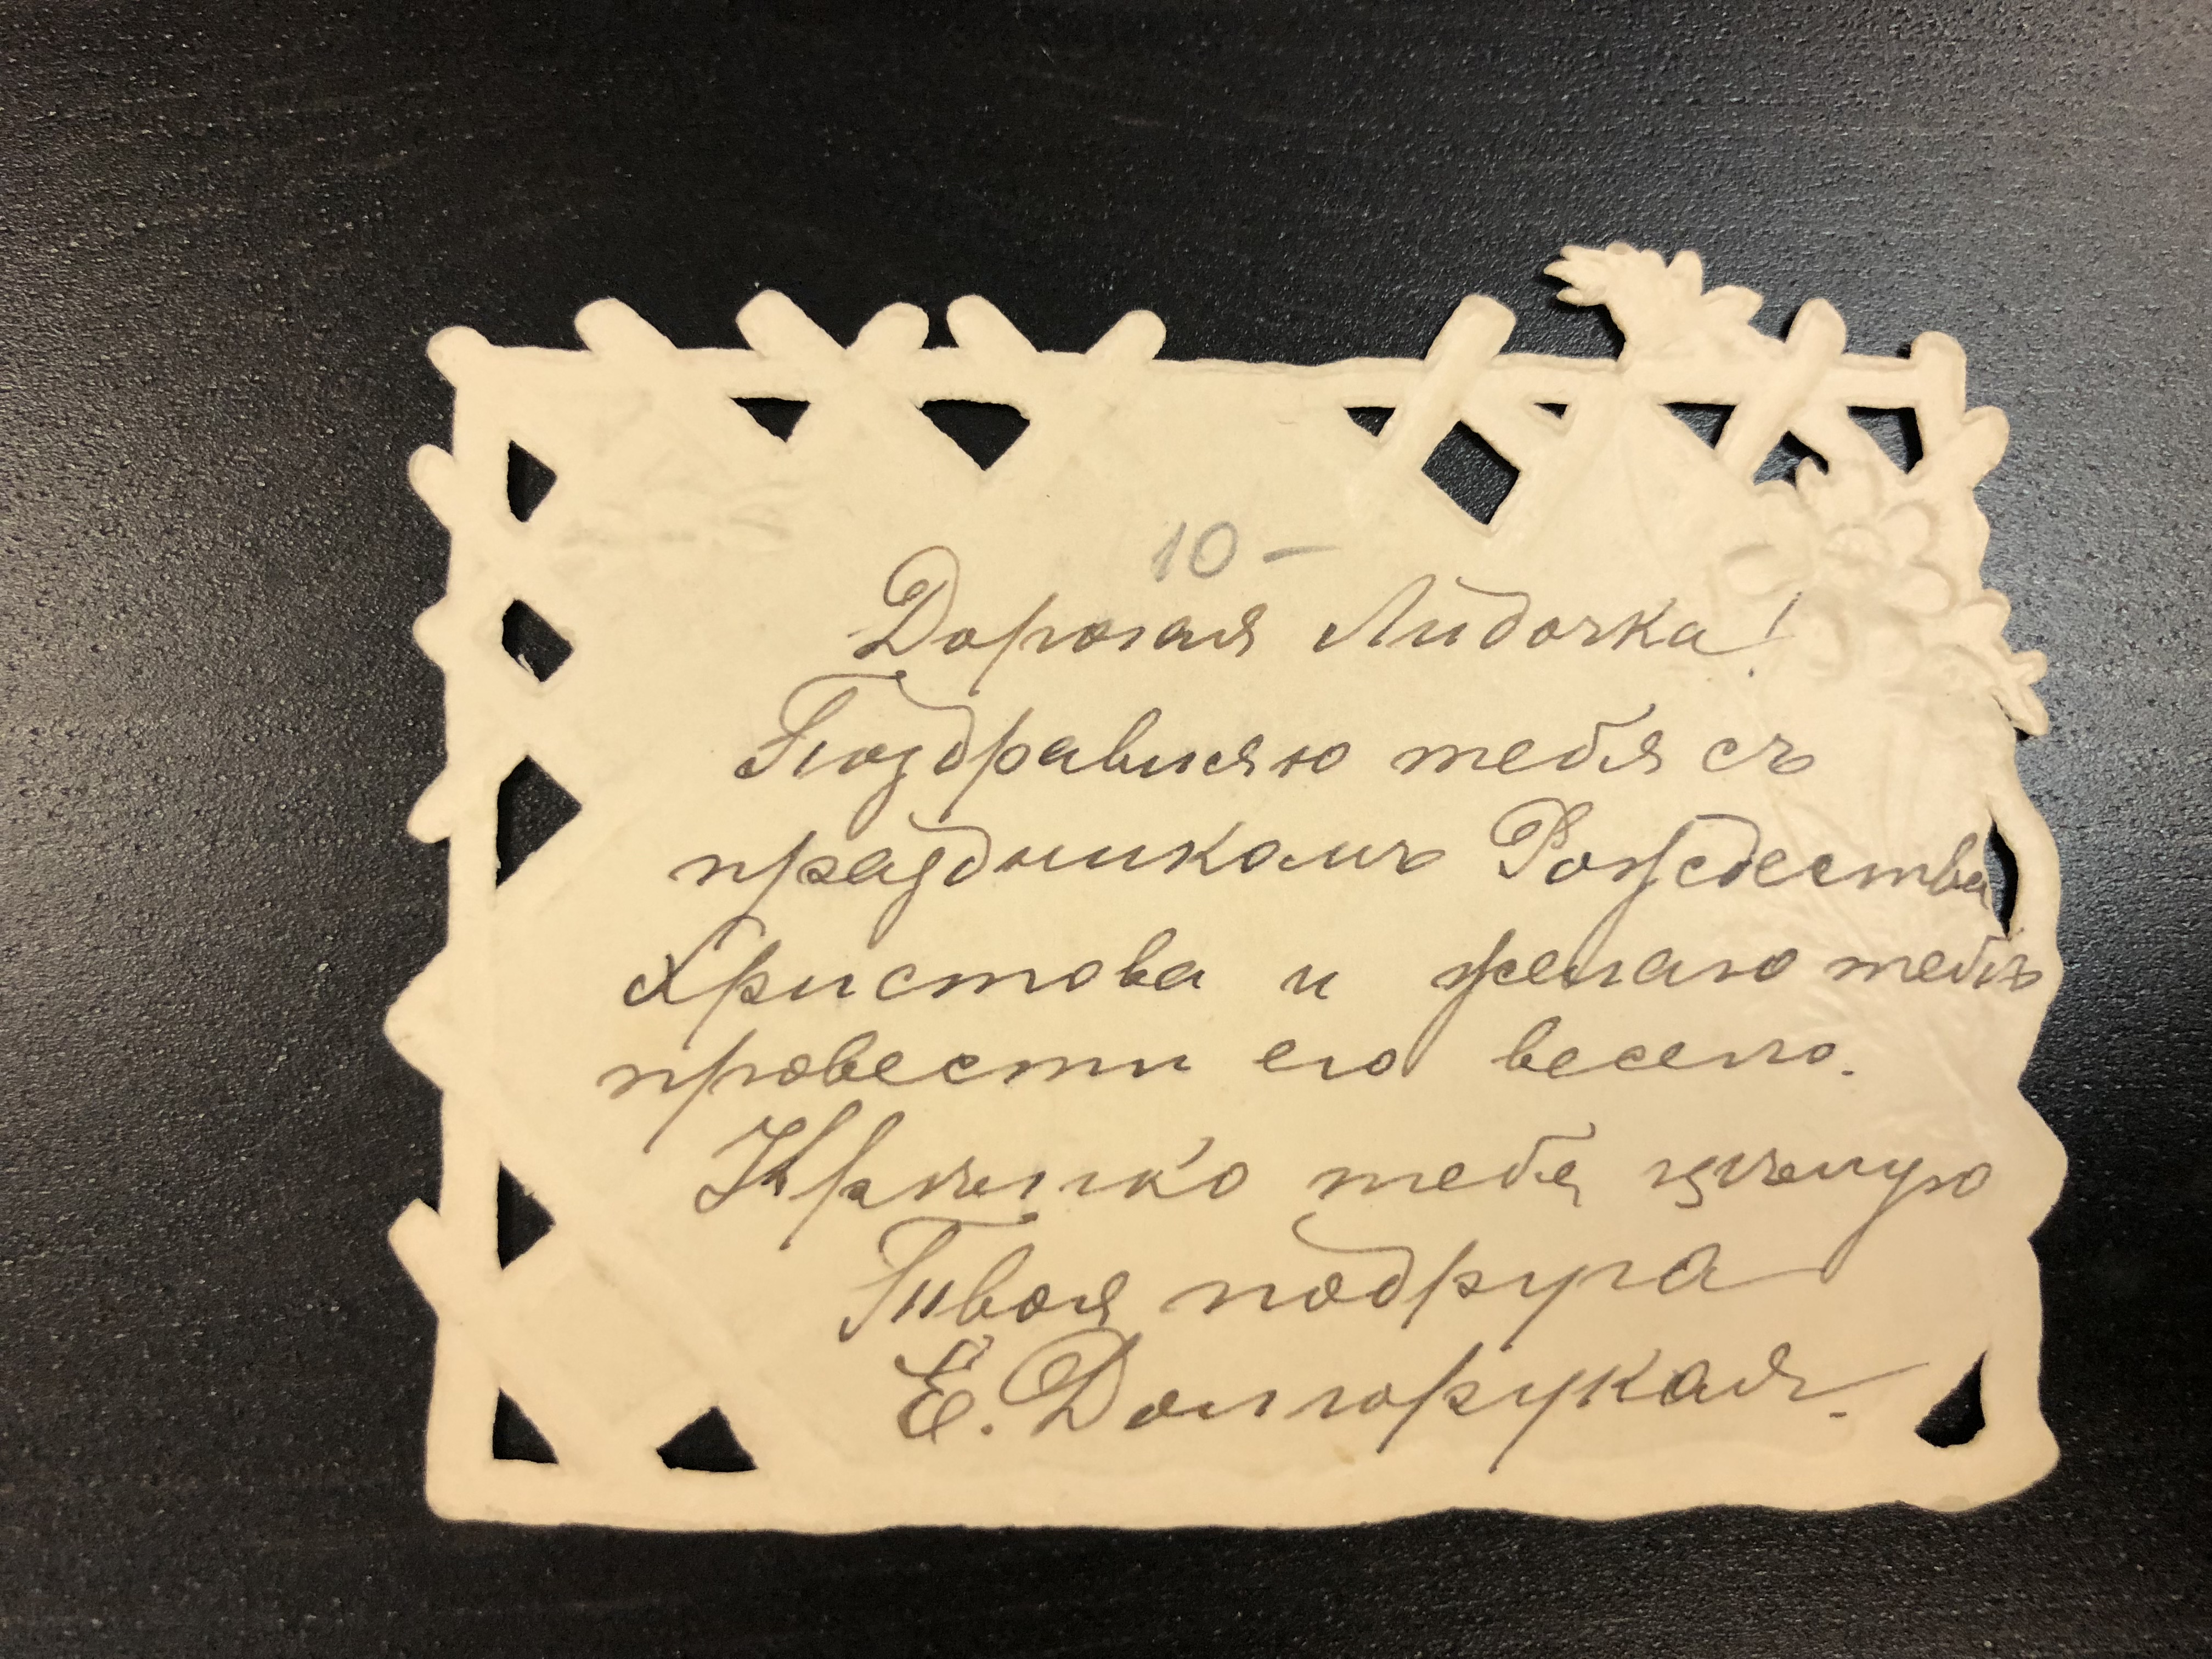 10 –
Дорогая Лидочка!
Поздравляю тебя съ
праздникомъ Рождества
Христова и желаю тебѣ
провести его весело.
Крѣпко тебя цѣлую
Твоя подруга
Е. Долгорукая.